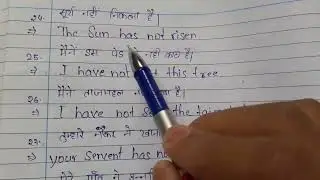 24. सूर्य नहीं निकला है।
⇒) The Sun has not risen
25. मैंने इस पेड़ नहीं काटा है।
⇒) I have not this tree
26. मैंने ताजमहल है।
⇒) I have not the
27. तुम्हारे नौकर ने
⇒) your Servent has
मेरे